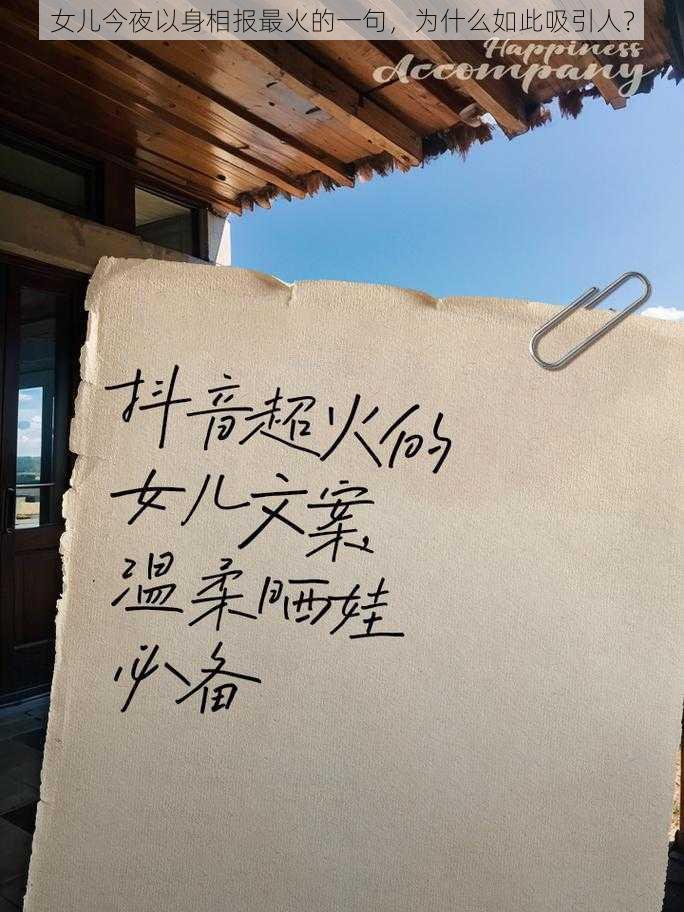 女儿今夜以身相报最火的一句，为什么如此吸引人？
Happiness
Accompany
抖音超火的
女儿文案
温柔晒娃
必备